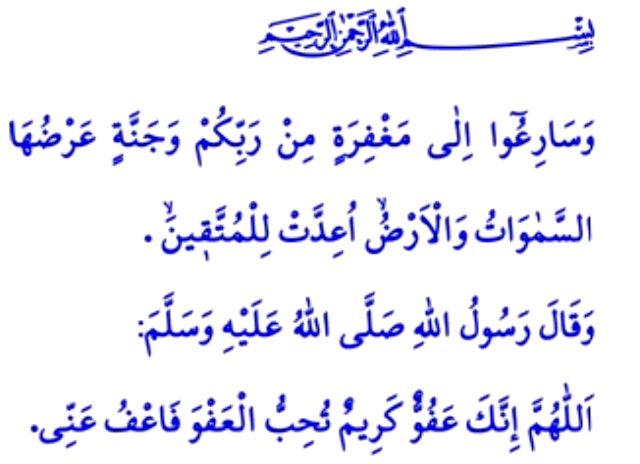 بِسْمِ اللهِ الرَّحْمٰنِ الرَّحِيمِ
وَسَارِعُٓوا اِلٰى مَغْفِرَةٍ مِنْ رَبِّكُمْ وَجَنَّةٍ عَرْضُهَا
السَّمٰوَاتُ وَالْاَرْضُۙ اُعِدَّتْ لِلْمُتَّقٖينَۙ .
وَقَالَ رَسُولُ اللهِ صَلَّى اللهُ عَلَيْهِ وَسَلَّمَ:
اَللّٰهُمَّ إِنَّكَ عَفُوٌّ كَرِيمٌ تُحِبُّ الْعَفْوَ فَاعْفُ عَنِّى.